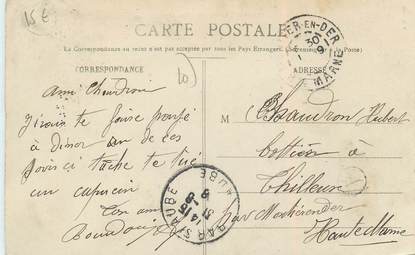 15 €
CARTE POSTALE
La Correspondance au verso n'est pas acceptée par tous les Pays Étrangers. (Se renseigner à la Poste)
CORRESPONDANCE
ADRESSE
10
ER-EN-DER
30
MARNE
Ami Chaudron
J'irais te faire
à dîner un de ces
jours ci tache te tué
un capucin
ton ami
M Chaudron Hubert
à
Thilleux
par Montiérender
Haute Marne
BAR-S-AUBE
AUBE